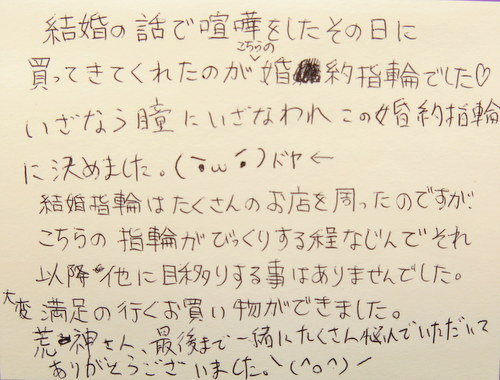 結婚の話で喧嘩をしたその日に
買ってきてくれたのがこちらの婚約指輪でした♡
いざなう瞳にいざなわれこの婚約指輪
に決めました。(・̀ω・́)ドヤ←
結婚指輪はたくさんのお店を周ったのですが、
こちらの指輪がびっくりする程なじんでそれ
以降他に目移りする事はありませんでした。
大変満足の行くお買い物ができました。
荒神さん、最後まで一緒にたくさん悩んでいただいて
ありがとうございました。\(^o^)/